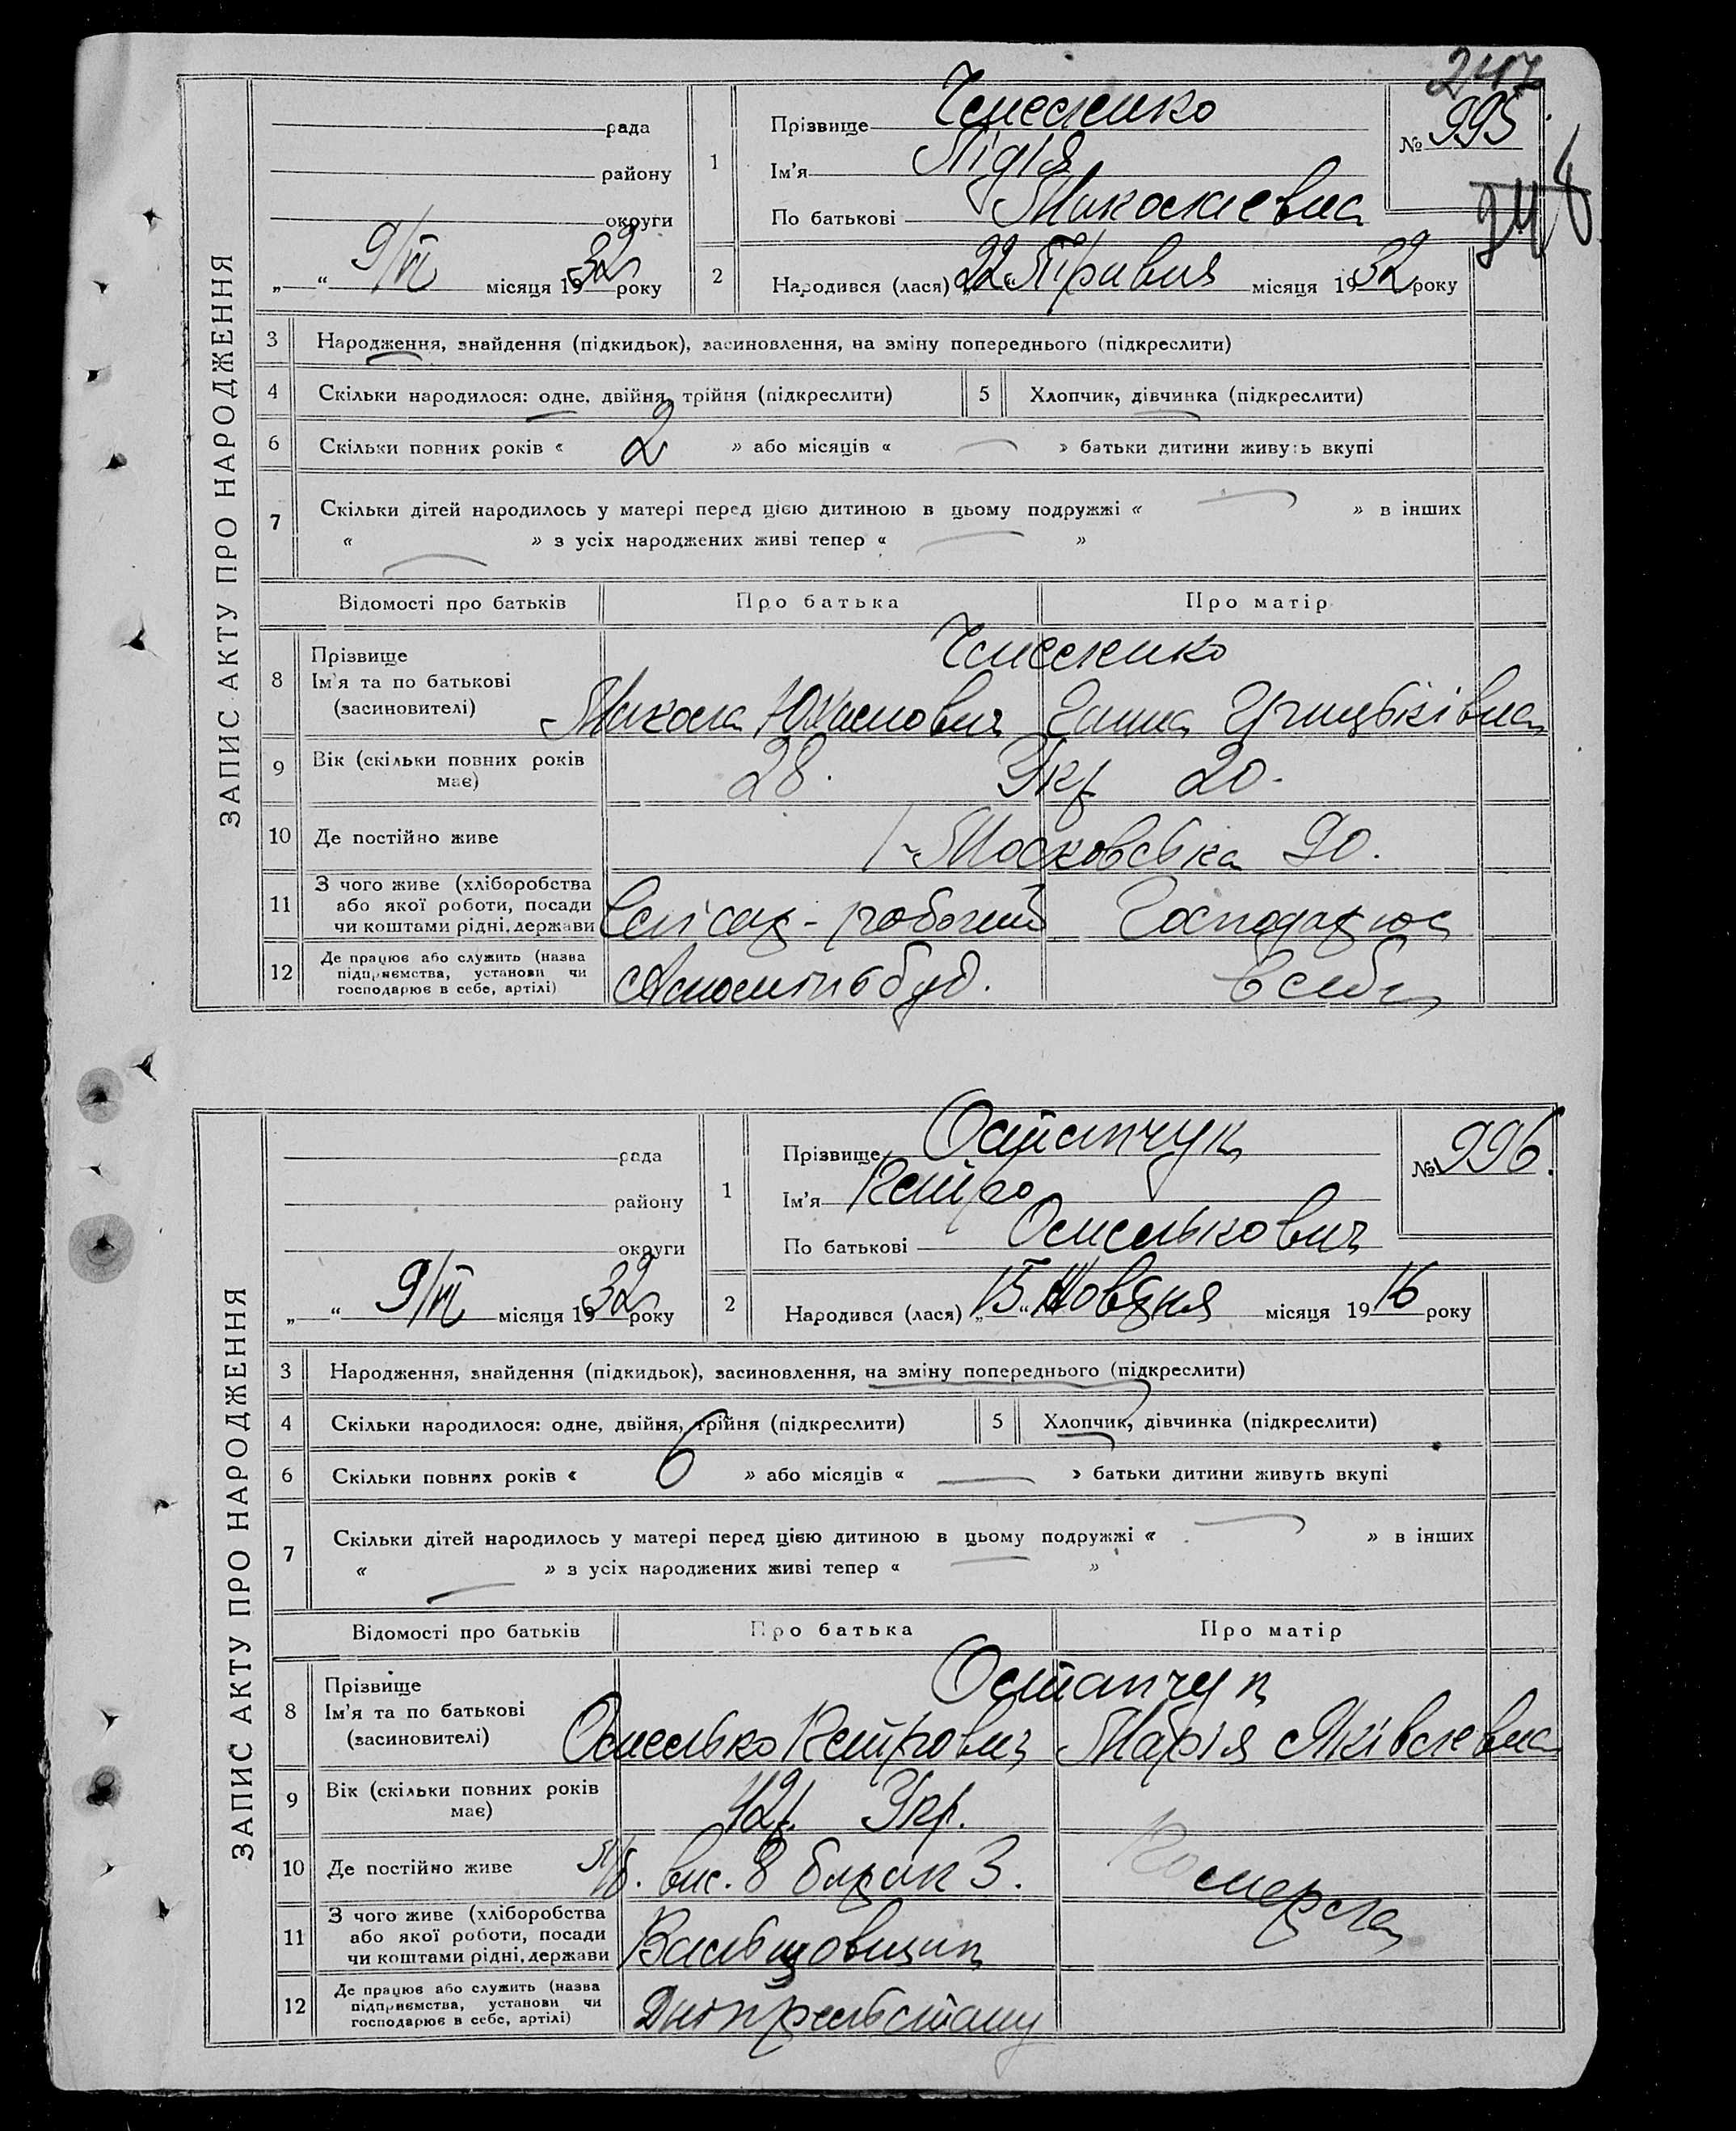 247
ЗАПИС АКТУ ПРО НАРОДЖЕННЯ
рада
району
округи
„ “ 9/VI місяця 1932 року
1
Прізвище
Ім'я Лідія
По батькові Миколаевна
№ 995
248
2 Народився (лася) „22“ Травня місяця 1932 року
3 Народження, знайдення (підкидьок), засиновлення, на зміну попереднього (підкреслити)
4 Скільки народилося: одне, двійня, трійня (підкреслити)
5 Хлопчик, дівчинка (підкреслити)
6 Скільки повних років « 2 » або місяців « — » батьки дитини живуть вкупі
7 Скільки дітей народилось у матері перед цією дитиною в цьому подружжі « — » в інших
« — » з усіх народжених живі тепер « — »
Відомості про батьків Про батька Про матір
8 Прізвище
Ім'я та по батькові
(засиновителі)
Микола Ганна
9 Вік (скільки повних років має) 28. Укр 20.
10 Де постійно живе Московська 90.
11 З чого живе (хліборобства або якої роботи, посади чи коштами рідні, держави
Слюсар - робочий Господарює
12 Де працює або служить (назва підприємства, установи чи господарює в себе, артілі)
в себе
ЗАПИС АКТУ ПРО НАРОДЖЕННЯ
рада
району
округи
„ “ 9/VI місяця 1932 року
1
Прізвище Остапчук
Ім'я Петро
По батькові Омелькович
№ 996.
2 Народився (лася) „15“ Жовтня місяця 1916 року
3 Народження, знайдення (підкидьок), засиновлення, на зміну попереднього (підкреслити)
4 Скільки народилося: одне, двійня, трійня (підкреслити)
5 Хлопчик, дівчинка (підкреслити)
6 Скільки повних років « 6 » або місяців « — » батьки дитини живуть вкупі
7 Скільки дітей народилось у матері перед цією дитиною в цьому подружжі « — » в інших
« — » з усіх народжених живі тепер « — »
Відомості про батьків Про батька Про матір
8 Прізвище
Ім'я та по батькові
(засиновителі)
Остапчук
Омелько Петрович Марія Яківлевна
9 Вік (скільки повних років має) 42р. Укр.
10 Де постійно живе вис. 8 барак 3. Померла
11 З чого живе (хліборобства або якої роботи, посади чи коштами рідні, держави
Вальцовщик
12 Де працює або служить (назва підприємства, установи чи господарює в себе, артілі)